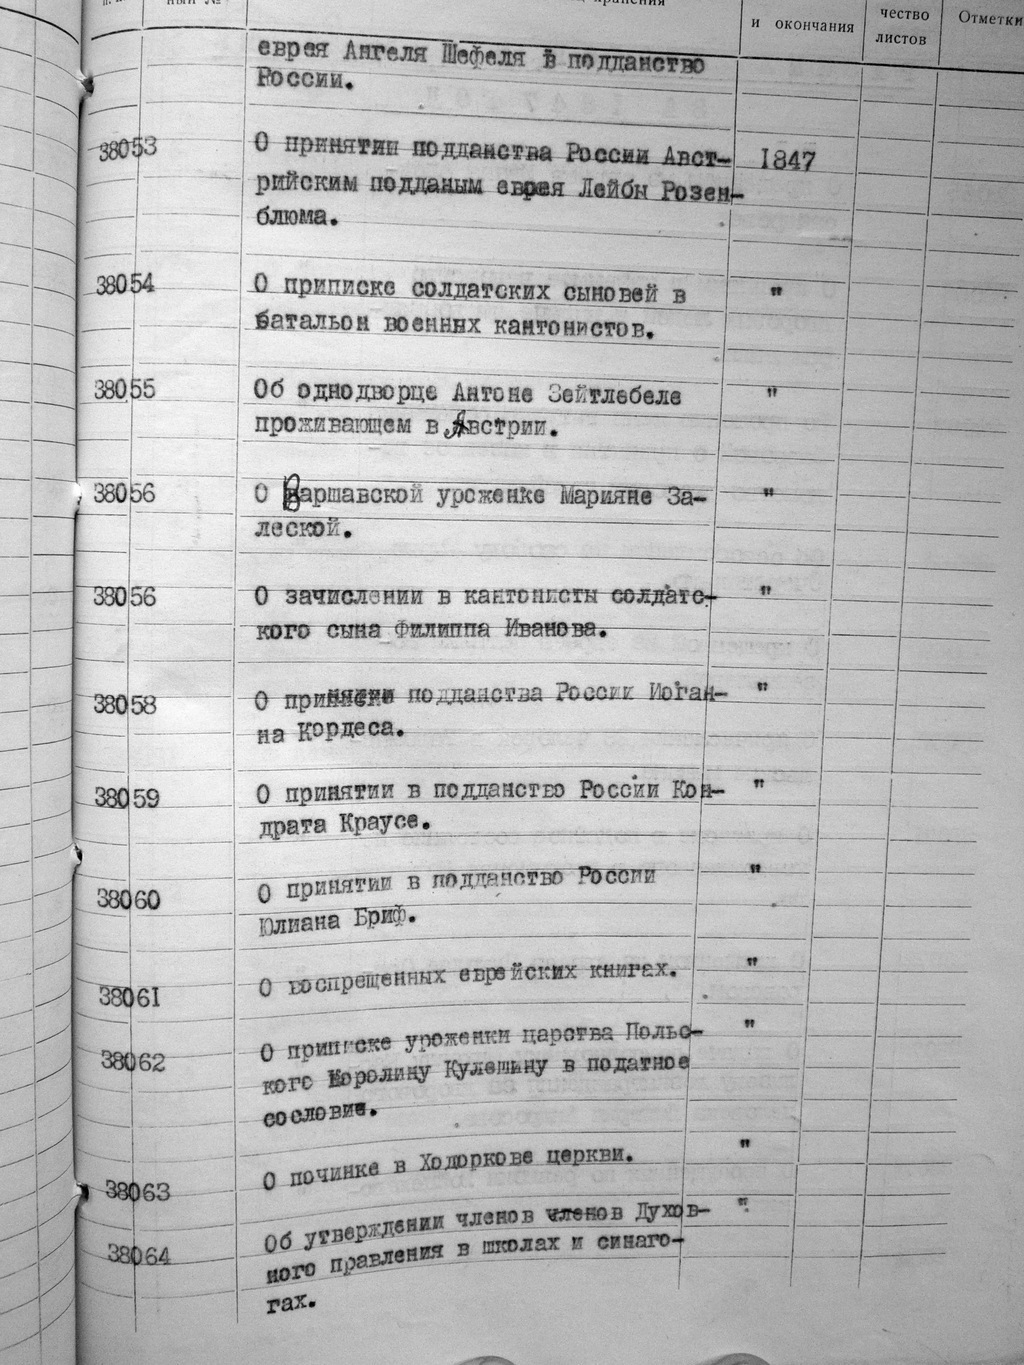 и окончания
чество
листов
Отметки
еврея Ангеля Шефеля в подданство
России.
38053 О принятии подданства России Авст- 1847
рийским подданым еврея Лейбы Розен-
блюма.
38054 О приписке солдатских сыновей в "
батальон военных кантонистов.
38055 Об однодворце Антоне Зейтлебеле "
проживающем в Австрии.
38056 О Варшавской уроженке Марияне За- "
леской.
38056 О зачислении в кантонисты солдатс- "
кого сына Филиппа Иванова.
38058 О принятии подданства России Иоган- "
на Кордеса.
38059 О принятии в подданство России Кон- "
драта Краусе.
38060 О принятии в подданство России "
Юлиана Бриф.
38061 О воспрещенных еврейских книгах. "
38062 О приписке уроженки царства Польс- "
кого Королину Кулешину в податное
сословие.
38063 О починке в Ходоркове церкви. "
38064 Об утверждении членов членов Духов- "
ного правления в школах и синаго-
гах.